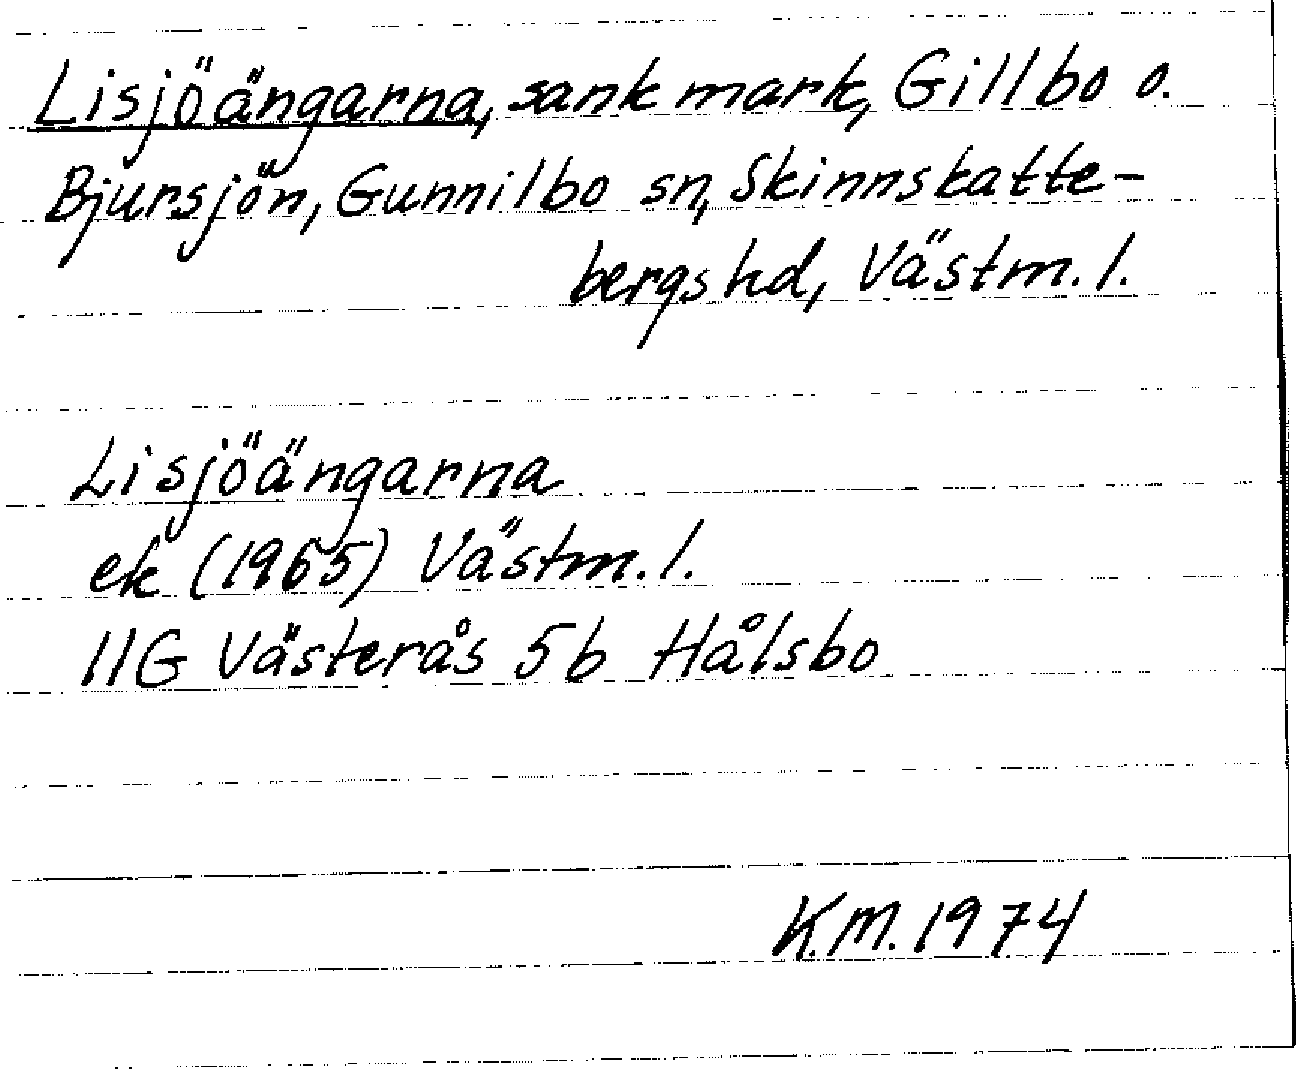 Lisjöängarna, sank mark, Gillbo o.
Bjursjön, Gunnilbo sn, Skinnskatte-
bergs hd, Västm. l.
Lisjöängarna
ek (1965) Västm. l.
11G Västerås 5b Hålsbo
K.M. 1974